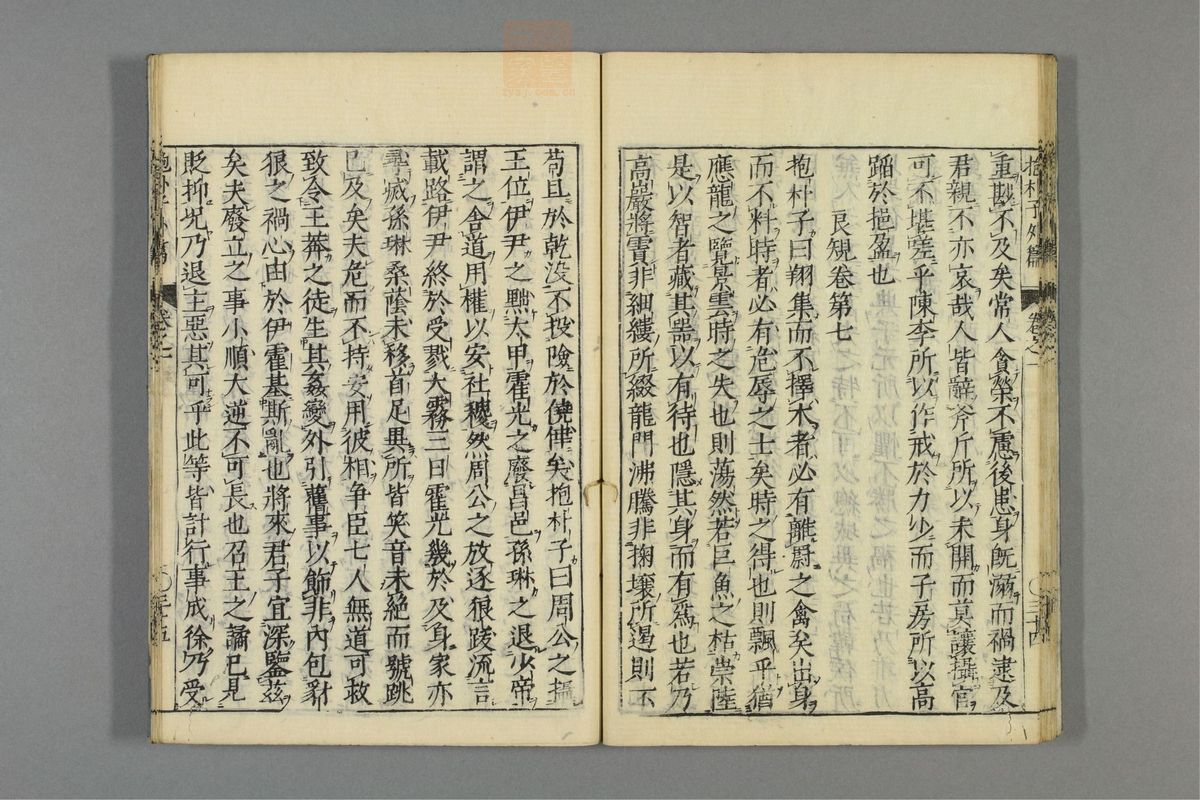 抱朴子外篇
重尠不及矣常人貪榮不慮後患身旣溺而禍逮及
君親不亦哀哉人皆辭斧斤所以未開而莫讓攝官
可不堪嗟乎陳李所以作戒於力少而子房所以高
蹈於挹盈也
良規卷第七
抱朴子曰翔集而不擇木者必有離罻之禽矣出身
而不料時者必有危辱之士矣時之得也則飄乎猶
應龍之覽景雲時之失也則蕩然若巨魚之枯崇陸
是以智者藏其器以有待也隱其身而有爲也若乃
高巖將霣非細縷所綴龍門沸騰非掬壤所遏則不
苟且於乾没不投險於僥倖矣抱朴子曰周公之攝
王位伊尹之黜太甲霍光之廢昌邑孫琳之退少帝
謂之舍道用權以安社稷然周公之放逐狼跋流言
載路伊尹終於受戮大霧三日霍光幾於及身家亦
尋滅孫琳桑蔭未移首足異所皆笑音未絶而號跳
已及矣夫危而不持安用彼相争臣七人無道可救
致令王莽之徒生其姦變外引舊事以飾非内包豺
狼之禍心由於伊霍基斯亂也將來君子宜深鑒茲
矣夫廢立之事小順大逆不可長也召王之譎已見
貶抑况乃退主惡其可乎此等皆計行事成徐乃受
zysj.com.cn